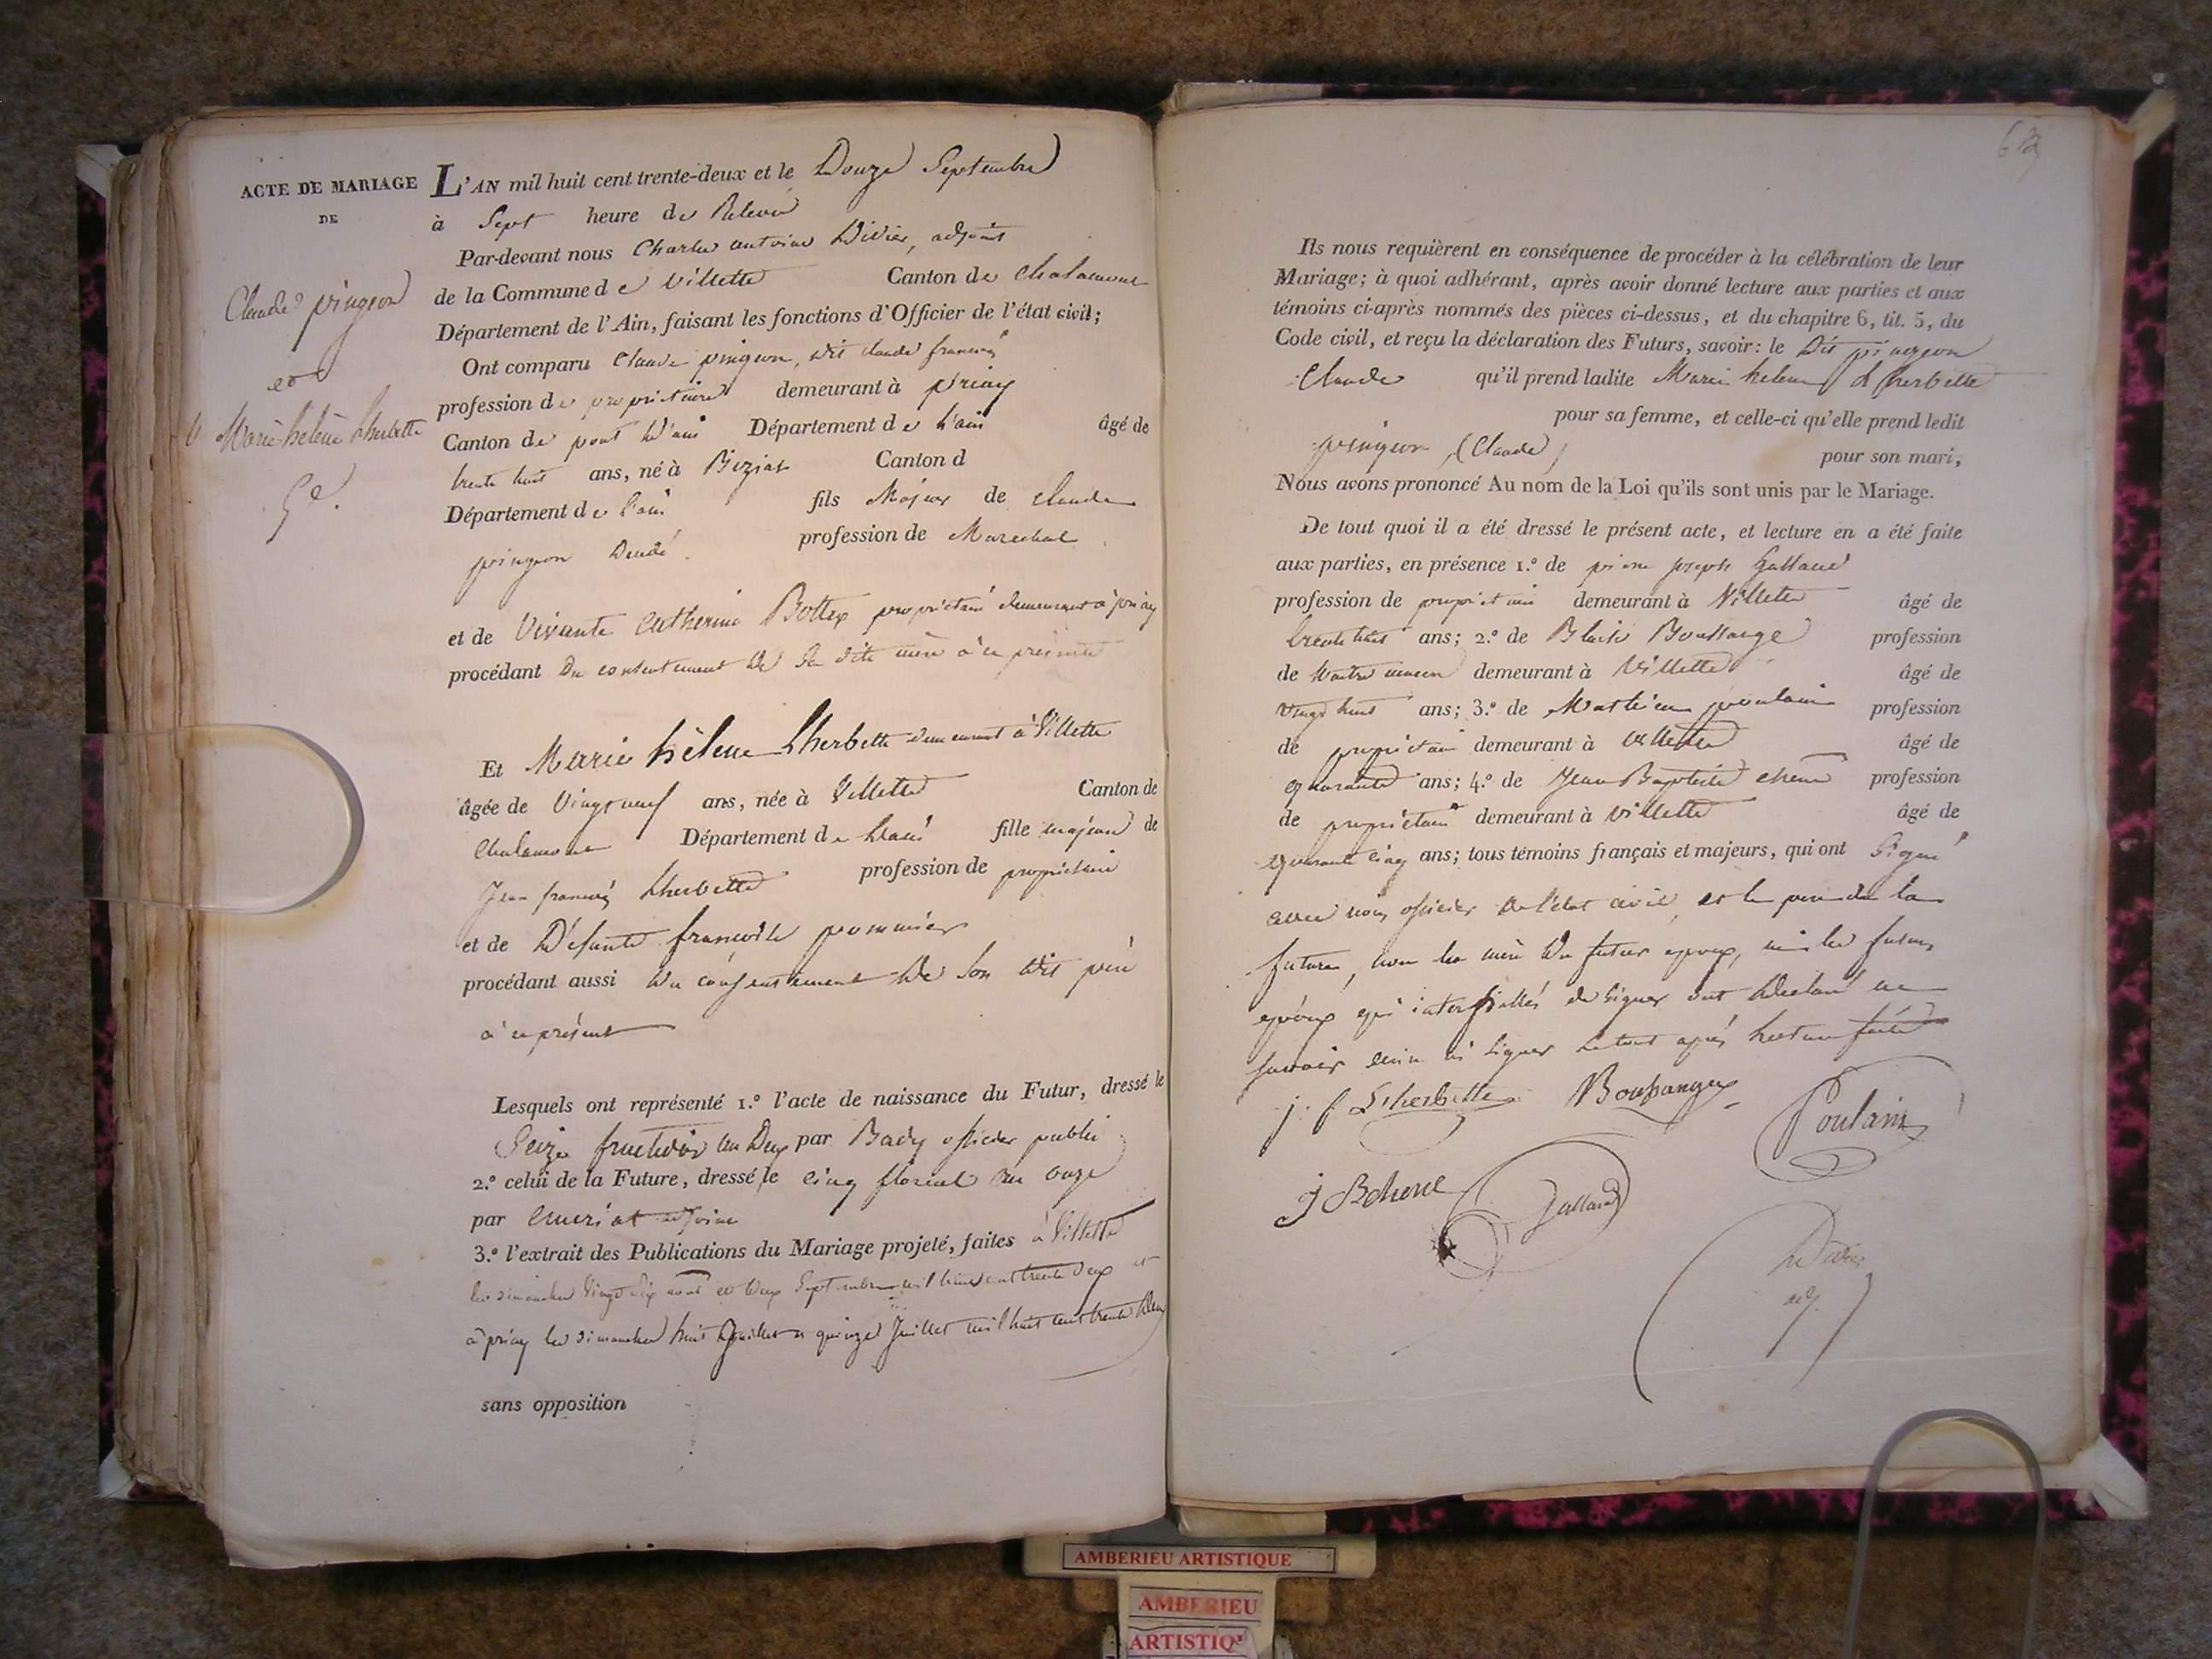 ACTE DE MARIAGE
DE
Claude pingeon
et
Marie hélène Lherbette
L'AN mil huit cent trente-deux et le Douze Septembre
à Sept heure de Relevé
Par-devant nous Charles antoine Didier, adjoint
de la Commune de Villette Canton de Chalamont
Département de l'Ain, faisant les fonctions d'Officier de l'état civil;
Ont comparu Claude pingeon, dit claude françois
profession de propriétaire demeurant à priay
Canton de pont d'ain Département de L'ain âgé de
trente huit ans, né à Biziat Canton d
Département de L'ain fils Majeur de Claude
pingeon Décédé profession de Marechal
et de Vivante Catherine Bottex propriétaire demeurant à priay
procédant Du consentement de Sa dite mère à ce présente
Et Marie hélène Lherbette demeurant à Villette
âgée de Vingt neuf ans, née à Villette Canton de
Chalamont Département de Lain fille majeure de
Jean françois Lherbette profession de propriétaire
et de Défunte françoise pommier
procédant aussi du consentement de Son dit père
à ce présent
Lesquels ont représenté 1.º l'acte de naissance du Futur, dressé le
Seize fructidor an Deux par Bady officier public
2.º celui de la Future, dressé le cinq floréal an onze
par adjoint
3.º l'extrait des Publications du Mariage projeté, faites à Villette
les dimanches Vingt Six aout et deux Septembre mil huit cent trente deux et
à priay les dimanches huit Juillet et quinze Juillet mil huit cent trente deux
sans opposition
Ils nous requièrent en conséquence de procéder à la célébration de leur
Mariage; à quoi adhérant, après avoir donné lecture aux parties et aux
témoins ci-après nommés des pièces ci-dessus, et du chapitre 6, tit. 5, du
Code civil, et reçu la déclaration des Futurs, savoir: le Dit pingeon
Claude qu'il prend ladite Marie helene Lherbette
pour sa femme, et celle-ci qu'elle prend ledit
pingeon (Claude) pour son mari,
Nous avons prononcé Au nom de la Loi qu'ils sont unis par le Mariage.
De tout quoi il a été dressé le présent acte, et lecture en a été faite
aux parties, en présence 1.º de pierre joseph Galland
profession de propriétaire demeurant à Villette âgé de
trente huit ans; 2.º de Blaise Boussange profession
de Maitre macon demeurant à Villette âgé de
Vingt huit ans; 3.º de Mathieu poulain profession
de propriétaire demeurant à Villette âgé de
quarante ans; 4.º de Jean Baptiste chene profession
de propriétaire demeurant à Villette âgé de
quarante cinq ans; tous témoins français et majeurs, qui ont Signé
avec nous officier de l'état civil, et le père de la
future, non la mère du futur epoux, ni les futurs
epoux qui interpellés de signer ont déclaré ne
savoir ecrire ni signer le tout après lecture faite
j. f Lherbette Boussange Poulain
J B chene Galland
Didier
adj.
AMBERIEU ARTISTIQUE
AMBERIEU
ARTISTIQ